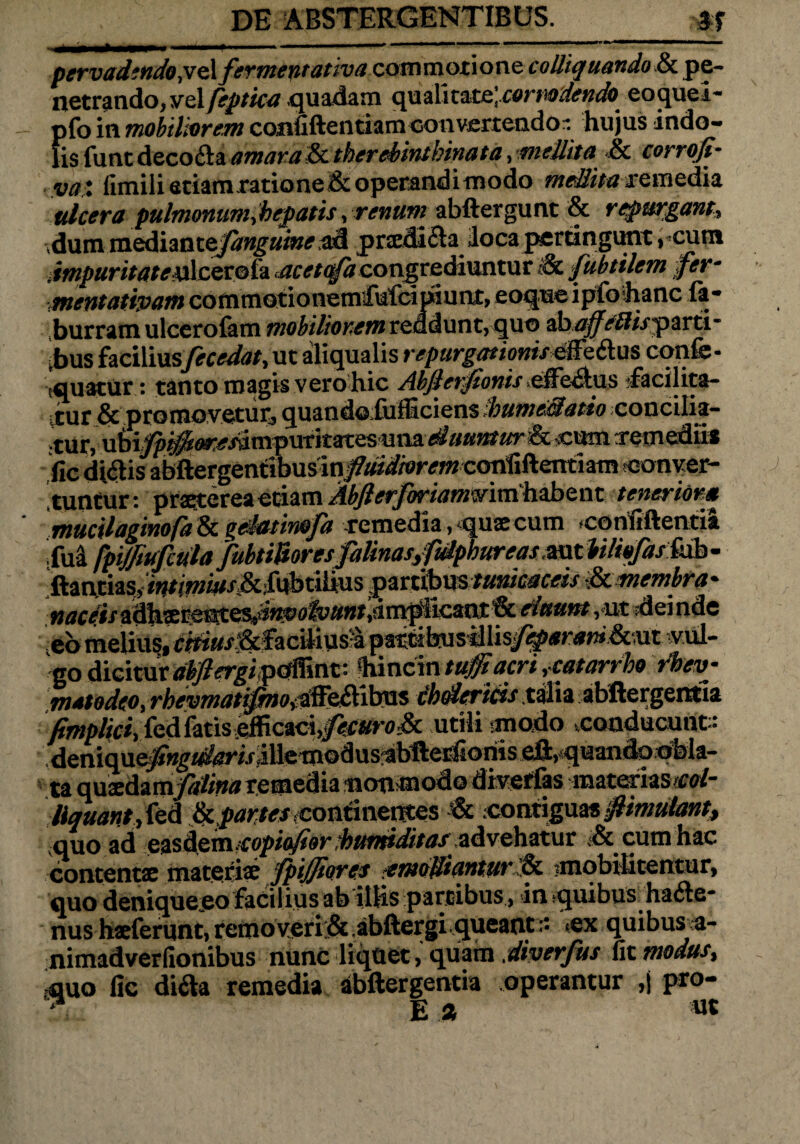 DE ABSTERGENTIBUS. 35
pervadendo, vel fermentativa commotione colliquando & pe-
netrando, vel ſeptica quadam qualitate, corrodendo eoque i-
pſo in mobiliorem conſiſtentiam convertendo: hujus indo-
lis ſunt decocta amara & therebinthinata, mellita & corroſi-
va: ſimili etiam ratione & operandi modo mellita remedia
ulcera pulmonum, hepatis, renum abſtergunt & repurgant,
dum mediante ſanguine ad prædicta loca pertingunt, cum
impuritate ulceroſa acetoſa congrediuntur & ſubtilem fer-
mentativam commotionem ſuſcipiunt, eoque ipſo hanc ſa-
burram ulceroſam mobiliorem reddunt, quo ab affectis parti-
bus facilius ſecedat, ut aliqualis repurgationis effectus conſe-
quatur: tanto magis vero hic Abſterſionis effectus facilita-
tur & promovetur, quando ſufficiens humectatio concilia-
tur, ubi ſpiſſiores impuritates una eluuntur & cum remediis
ſic dictis abſtergentibus in fluidiorem conſiſtentiam conver-
tuntur: præterea etiam Abſterſoriam vim habent teneriora
mucilaginoſa & gelatinoſa remedia, quæ cum conſiſtentiâ
ſuâ ſpiſſiuſcula ſubtiliores ſalinas, ſulphureas aut bilioſas ſub-
ſtantias, intimius & ſubtilius partibus tunicaceis & membra-
naceis adhærentes, involvunt, implicant & eluunt, ut deinde
eo melius, citius & facilius à partibus illis ſeparari & ut vul-
go dicitur abſtergi poſſint: hinc in tuſſi acri, catarrho rhev-
matodeo, rhevmatiſmo, affectibus cholericis talia abſtergentia
ſimplici, ſed ſatis efficaci, ſecuro & utili modo conducunt:
denique ſingularis ille modus abſterſionis eſt, quando obla-
ta quædam ſalina remedia non modo diverſas materias col-
liquant, ſed & partes continentes & contiguas ſtimulant,
quo ad easdem copioſior humiditas advehatur & cum hac
contentæ materiæ ſpiſſiores emolliantur & mobilitentur,
quo denique eo facilius ab illis partibus, in quibus hacte-
nus hæſerunt, removeri & abſtergi queant: ex quibus a-
nimadverſionibus nunc liquet, quam diverſus ſit modus,
quo ſic dicta remedia abſtergentia operantur, pro-
E 2 ut